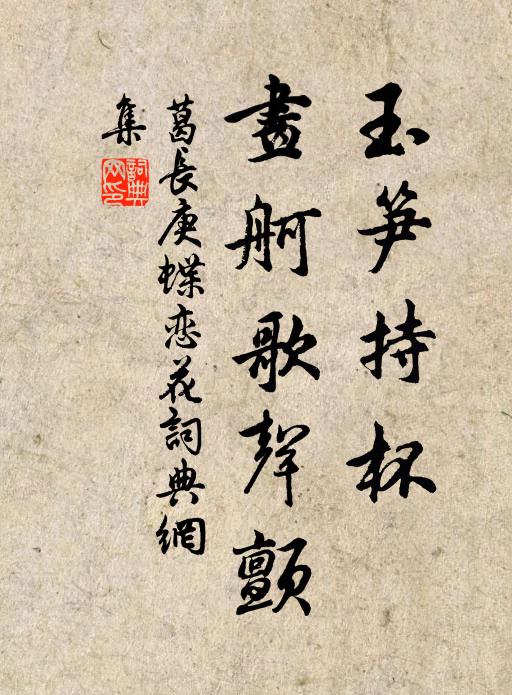 玉笋持杯
畫舸歌聲顫
葛長庚蝶恋花詞典網
集
詞典
网印